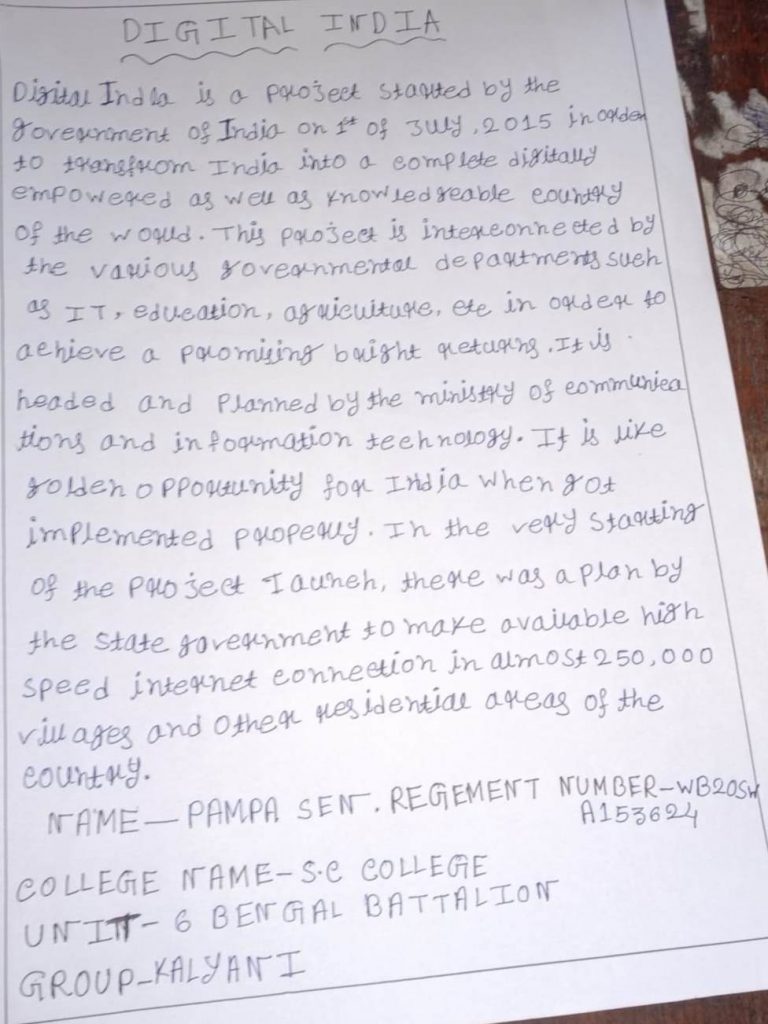 DIGITAL INDIA
Digital India is a project started by the
government of India on 1st of July, 2015 in order
to transfrom India into a complete digitally
empowered as well as knowledgeable country
of the world. This project is interconnected by
the various governmental departments such
as IT, education, agriculture, etc in order to
achieve a promising bright returns. It is
headed and planned by the ministry of communica
tions and information technology. It is like
golden opportunity for India when got
implemented properly. In the very starting
of the project launch, there was a plan by
the state government to make available high
speed internet connection in almost 250,000
villages and other residential areas of the
country.
NAME- PAMPA SEN. REGEMENT NUMBER-WB20SW
A153624
COLLEGE NAME- S.C COLLEGE
UNIT- 6 BENGAL BATTALION
GROUP-KALYANI